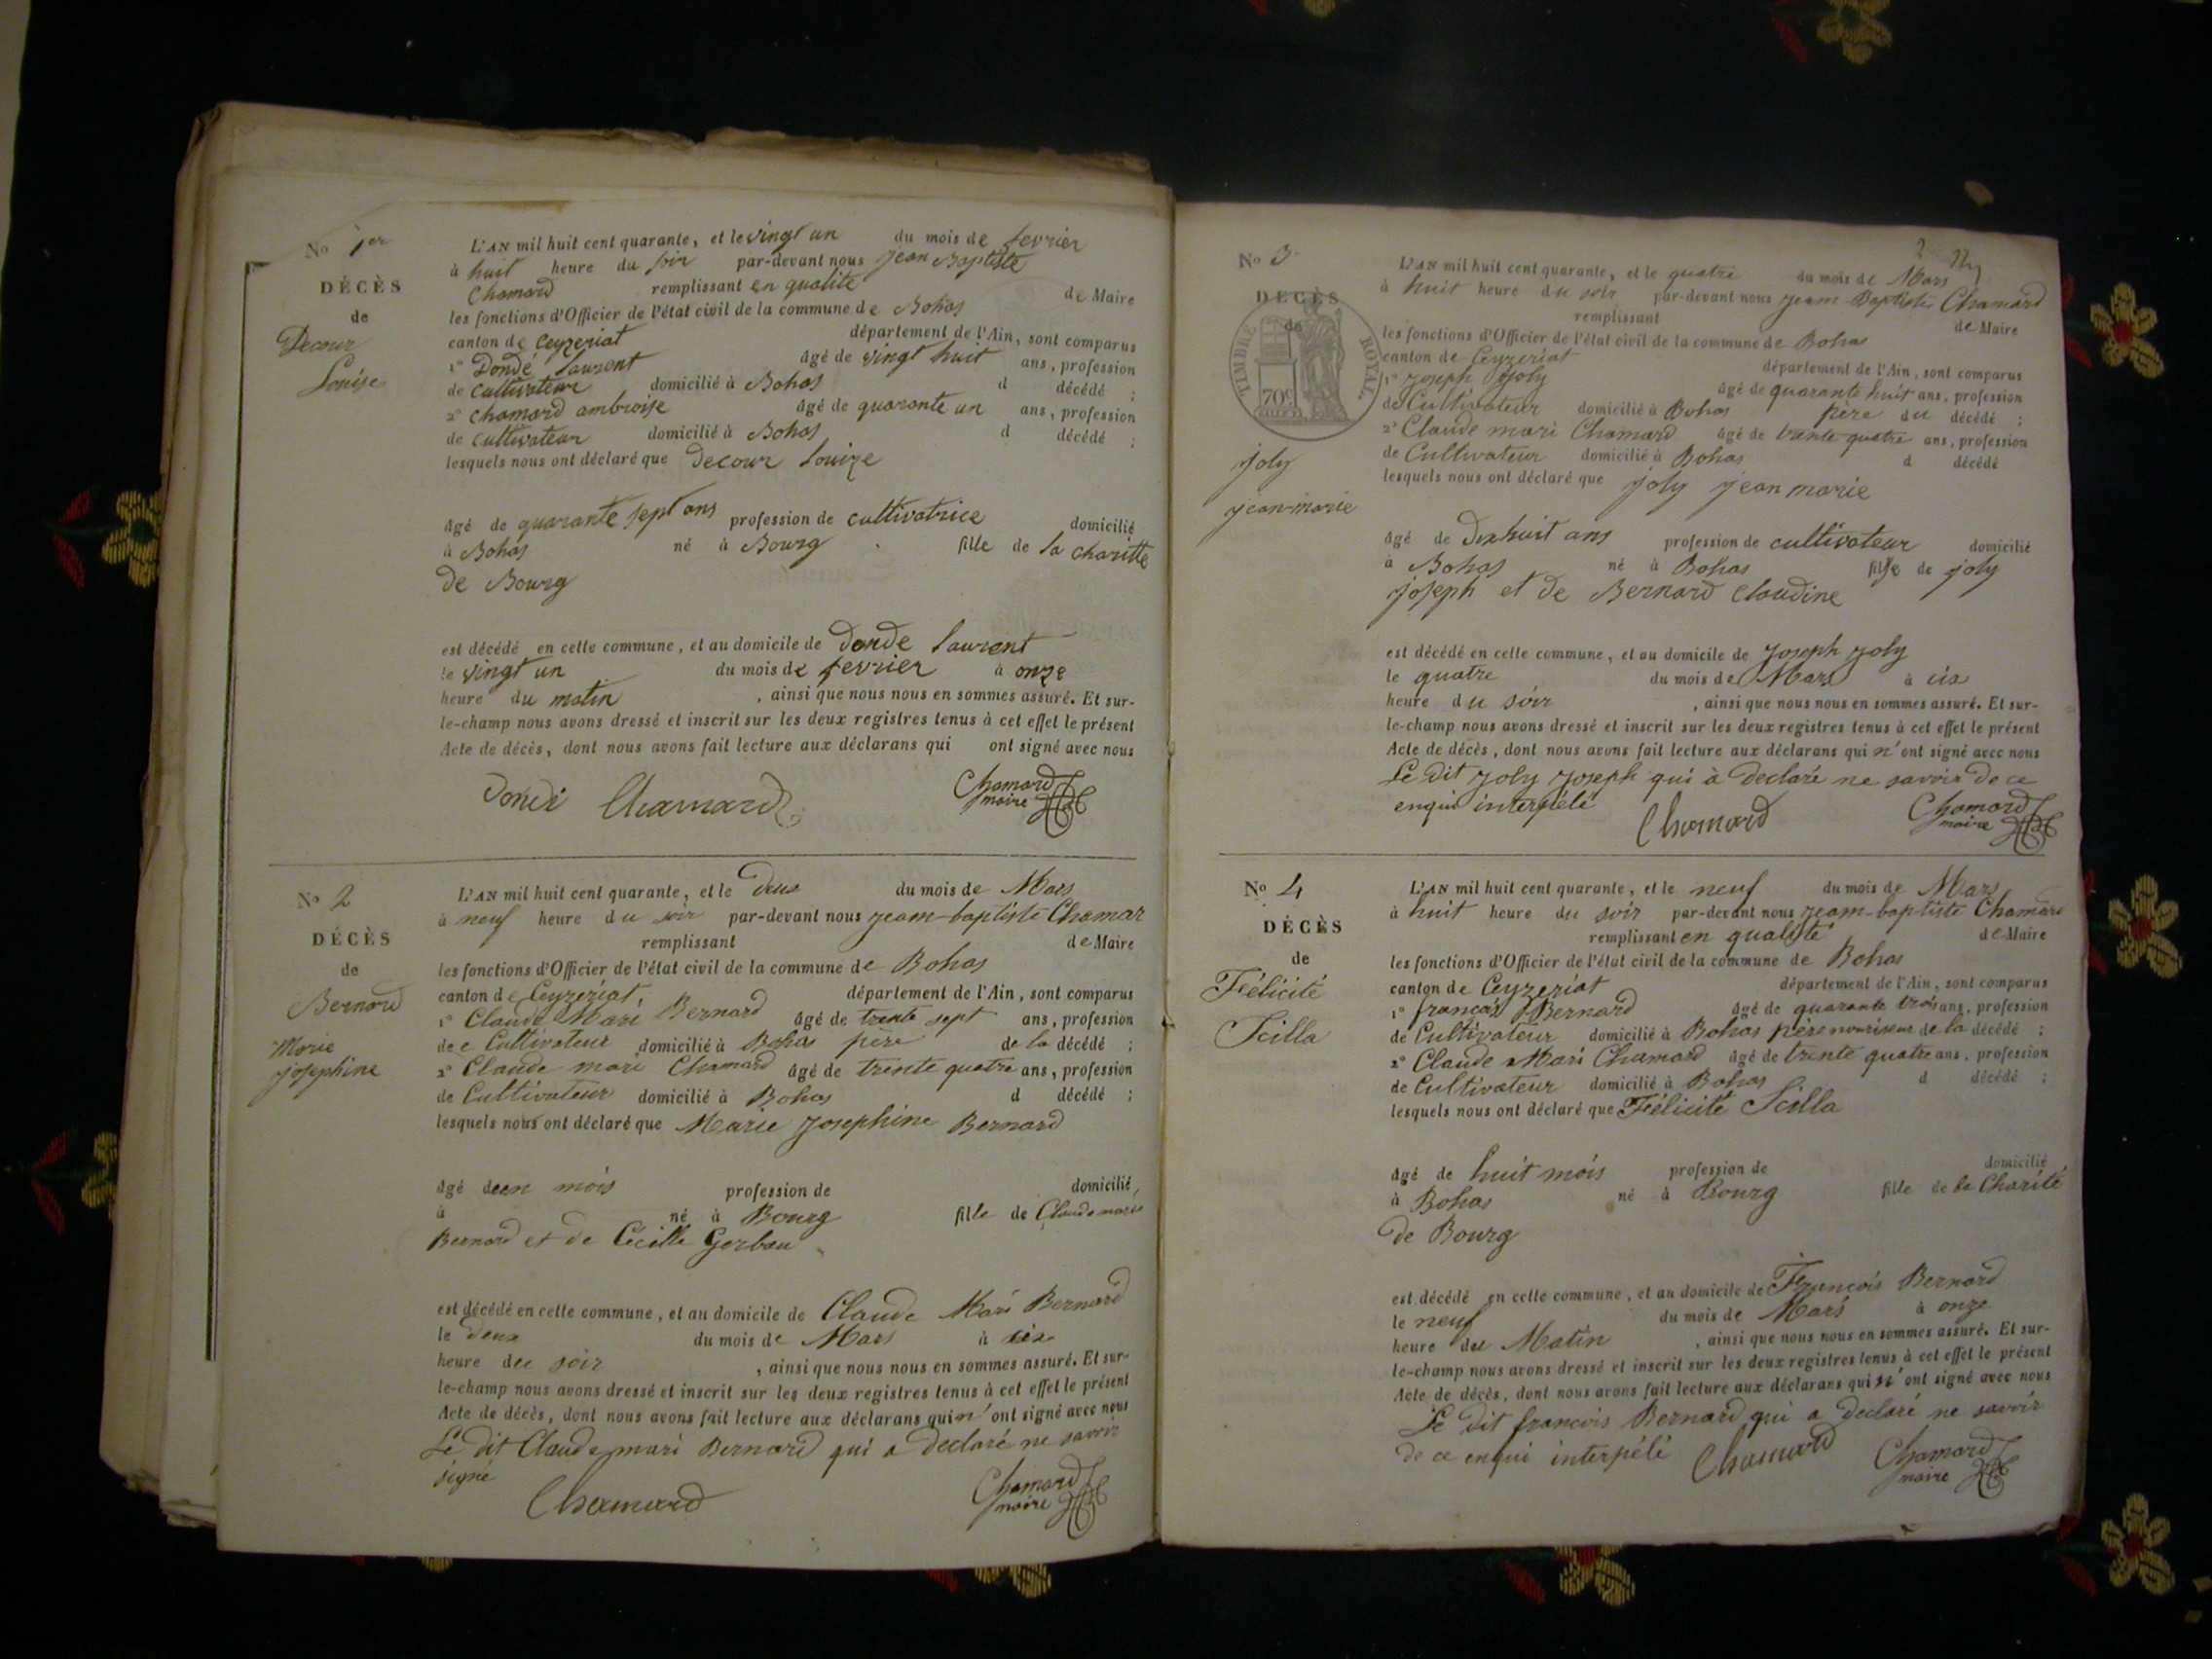 No 1er
DÉCÈS
de
Decour
Louise
L'AN mil huit cent quarante, et le vingt un du mois de fevrier
à huit heure du soir par-devant nous jean Baptiste
Chamard remplissant en qualité de Maire
les fonctions d'Officier de l'état civil de la commune de Bohas
canton de Ceyzeriat département de l'Ain, sont comparus
1° Dondé laurent âgé de vingt huit ans, profession
de cultivateur domicilié à Bohas d décédé ;
2° chamard ambroise âgé de quarante un ans, profession
de cultivateur domicilié à Bohas d décédé ;
lesquels nous ont déclaré que decour louize
âgé de quarante sept ans profession de cultivatrice domicilié
à Bohas né à Bourg fille de la charitte
de Bourg
est décédé en cette commune, et au domicile de dondé laurent
le vingt un du mois de fevrier à onze
heure du matin , ainsi que nous nous en sommes assuré. Et sur-
le-champ nous avons dressé et inscrit sur les deux registres tenus à cet effet le présent
Acte de décès, dont nous avons fait lecture aux déclarans qui ont signé avec nous
Dondé Chamard Chamard
maire
No 2
DÉCÈS
de
Bernard
Marie
josephine
L'AN mil huit cent quarante, et le deux du mois de Mars
à neuf heure du soir par-devant nous jeam-baptiste Chamar
remplissant de Maire
les fonctions d'Officier de l'état civil de la commune de Bohas
canton de Ceyzeriat, département de l'Ain, sont comparus
1° Claude Mari Bernard âgé de trente sept ans, profession
de Cultivateur domicilié à Bohas père de la décédé ;
2° Claude mari Chamard âgé de trente quatre ans, profession
de Cultivateur domicilié à Bohas d décédé ;
lesquels nous ont déclaré que Marie Josephine Bernard
âgé de en mois profession de domicilié,
à né à Bourg fille de Claude marie
Bernard et de Cécille Gerbau
est décédé en cette commune, et au domicile de Claude Mari Bernard
le deux du mois de Mars à six
heure du soir , ainsi que nous nous en sommes assuré. Et sur-
le-champ nous avons dressé et inscrit sur les deux registres tenus à cet effet le présent
Acte de décès, dont nous avons fait lecture aux déclarans qui n' ont signé avec nous
Le dit Claude mari Bernard qui a declaré ne savoir
signé
Chamard Chamard
maire
2
No 3
DÉCÈS
de
TIMBRE ROYAL
70c
joly
jean-marie
L'AN mil huit cent quarante, et le quatre du mois de Mars
à huit heure du soir par-devant nous jeam-Baptiste Chamard
remplissant de Maire
les fonctions d'Officier de l'état civil de la commune de Bohas
canton de Ceyzeriat département de l'Ain, sont comparus
1° Joseph Joly âgé de quarante huit ans, profession
de Cultivateur domicilié à Bohas père du décédé ;
2° Claude mari Chamard âgé de trente quatre ans, profession
de Cultivateur domicilié à Bohas d décédé
lesquels nous ont déclaré que joly jean marie
âgé de dix huit ans profession de cultivateur domicilié
à Bohas né à Bohas fils de joly
joseph et de Bernard Claudine
est décédé en cette commune, et au domicile de Joseph Joly
le quatre du mois de Mars à six
heure du soir , ainsi que nous nous en sommes assuré. Et sur-
le-champ nous avons dressé et inscrit sur les deux registres tenus à cet effet le présent
Acte de décès, dont nous avons fait lecture aux déclarans qui n' ont signé avec nous
Le dit Joly Joseph qui à declaré ne savoir de ce
enqui interpélé Chamard Chamard
maire
No 4
DÉCÈS
de
Félicité
Scilla
L'AN mil huit cent quarante, et le neuf du mois de Mars
à huit heure du soir par-devant nous jeam-baptiste Chamard
remplissant en qualité de Maire
les fonctions d'Officier de l'état civil de la commune de Bohas
canton de Ceyzeriat département de l'Ain, sont comparus
1° françois Bernard âgé de quarante trois ans, profession
de Cultivateur domicilié à Bohas père nourisseur de la décédé ;
2° Claude Mari Chamard âgé de trente quatre ans, profession
de Cultivateur domicilié à Bohas d décédé ;
lesquels nous ont déclaré que Félicité Scilla
âgé de huit mois profession de domicilié
à Bohas né à Bourg fille de la Charité
de Bourg
est décédé en cette commune, et au domicile de François Bernard
le neuf du mois de Mars à onze
heure du Matin , ainsi que nous nous en sommes assuré. Et sur-
le-champ nous avons dressé et inscrit sur les deux registres tenus à cet effet le présent
Acte de décès, dont nous avons fait lecture aux déclarans qui n' ont signé avec nous
Le dit francois Bernard qui a declaré ne savoir
de ce enqui interpélé Chamard Chamard
maire